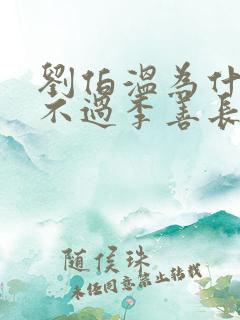 劉伯溫為什
不過李善長
隨侯珠
未經同意禁止轉載